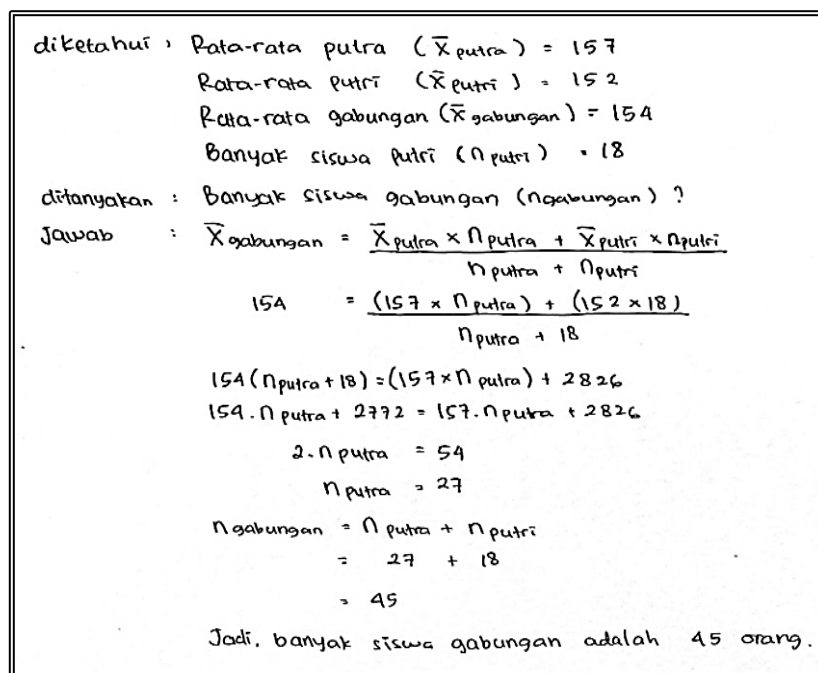 diketahui : Rata-rata putra (x̄ putra) = 157
Rata-rata putri (x̄ putri) = 152
Rata-rata gabungan (x̄ gabungan) = 154
Banyak siswa putri (n putri) = 18
ditanyakan : Banyak siswa gabungan (ngabungan) ?
Jawab : X̄ gabungan = X̄ putra × n putra + X̄ putri × n putri
n putra + n putri
154 = (157 × n putra) + (152 × 18)
n putra + 18
154 (n putra + 18) = (157 × n putra) + 2826
154 . n putra + 2772 = 157 . n putra + 2826
2 . n putra = 54
n putra = 27
n gabungan = n putra + n putri
= 27 + 18
= 45
Jadi, banyak siswa gabungan adalah 45 orang.